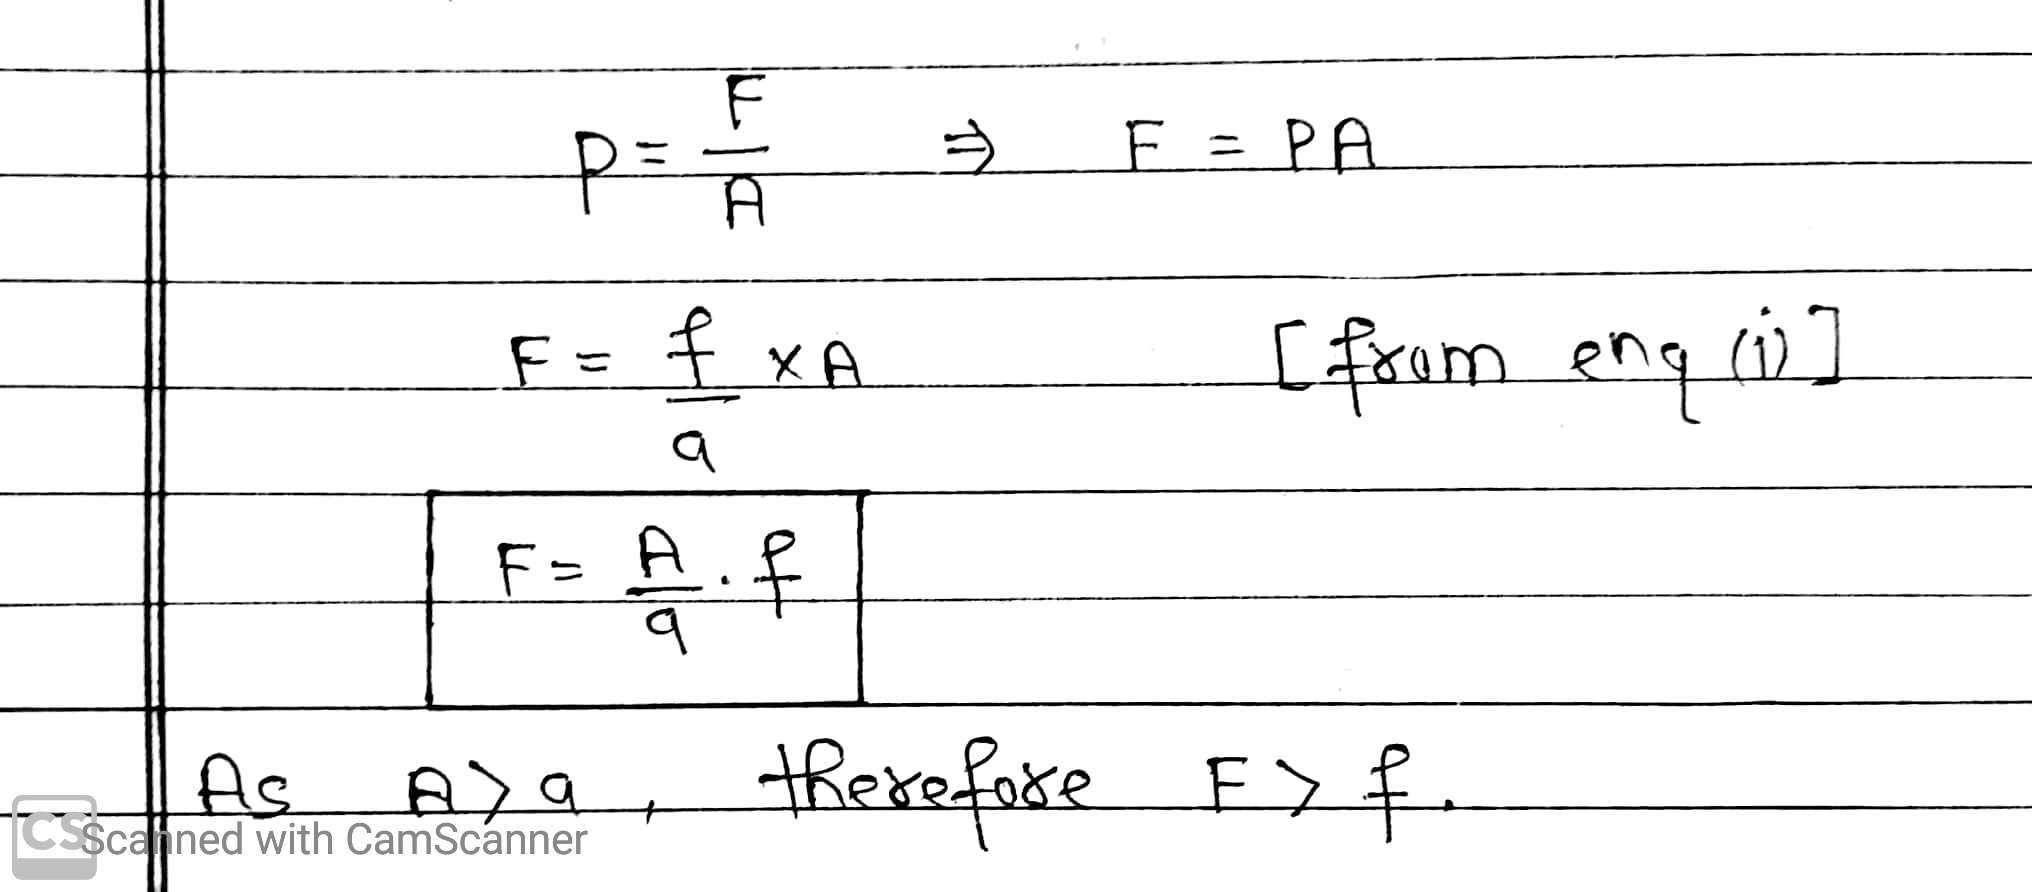 P = F/A ⇒ F = PA
F = f/a × A [from enq (i)]
F = A/a . f
As A > a , therefore F > f.
CS Scanned with CamScanner